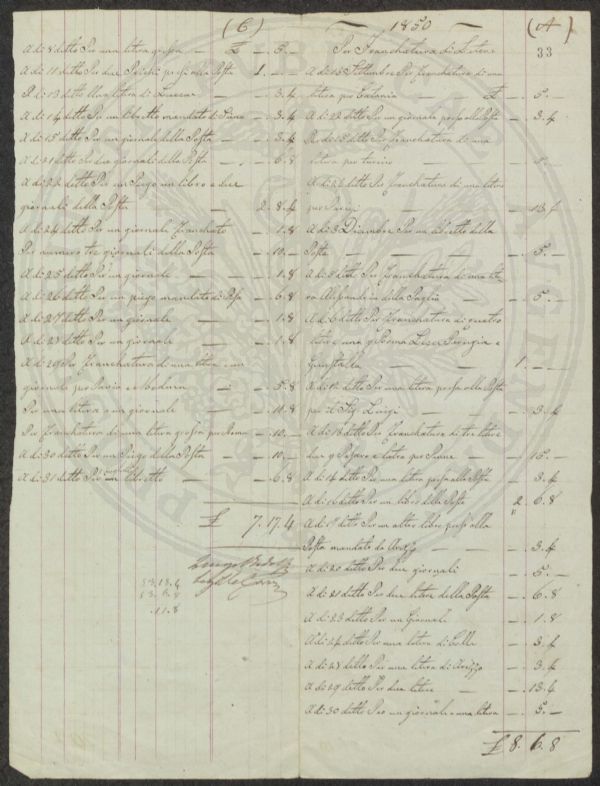 (6)
A di 8 ditto Per una litera grossa — £ — . 5 . —
A di 11 ditto Per due Pieghi presi alla Posta 1 . — . —
A di 13 ditto Una litera di — . 3 . 4
A di 14 ditto Per un libretto mandato di — . 3 . 4
A di 15 ditto Per un giornale della Posta — . 3 . 4
A di 21 ditto Per due giornali della Posta — . 6 . 8
A di 22 ditto Per un Piego un libro e due
giornali della Posta — 2 . 8 . 4
A di 24 ditto Per un giornale franchato — . 1 . 8
Per numero tre giornali della Posta — . 10 . —
A di 25 ditto Per un giornale — . 1 . 8
A di 26 ditto Per un piego mandato di Pisa — . 6 . 8
A di 27 ditto Per un giornale — . 1 . 8
A di 28 ditto Per un giornale — . 1 . 8
A di 29 Per franchatura di una litera e un
giornale per Pavia e Modena — . 5 . 8
Per una litera e un giornale — . 10 . 8
Per franchatura di una litera grossa per Roma — . 10 . —
A di 30 ditto Per un Piego della Posta — . 10 . —
A di 31 ditto Per un libretto — . 6 . 8
£ 7 . 17 . 4
13,13.4
13. 6.8
.11.8
1850 (A)
33
Per Franchatura di Litere
A di 15 Settembre Per franchatura di una
litera per Catania — £ — . 5 . —
A di 23 ditto Per un giornale preso alla Posta — . 3 . 4
A di 25 ditto Per franchatura di una
litera per
A di 26 ditto Per franchatura di una litera
per Parigi — . 13 . 4
A di 3 Dicembre Per un libretto della
Posta — . 5 . —
A di 5 ditto Per franchatura di una lite
ra Alessandria della Paglia — . 5 . —
A di 6 ditto Per franchatura di quatro
litere una per Roma Perugia e
Guastalla — 1 . — . —
A di 12 ditto Per una litera presa alla Posta
per il Sig. Luigi — . 3 . 4
A di 13 ditto Per franchatura di tre litere
due e l'altra per — . 15 . —
A di 14 ditto Per una litera presa alla Posta — . 3 . 4
A di 16 ditto Per un libro della Posta 2 . 6 . 8
A di 17 ditto Per un altro libro preso alla
Posta mandato da Arezzo — . 3 . 4
A di 20 ditto Per due giornali — . 5 . —
A di 21 ditto Per due litere della Posta — . 6 . 8
A di 23 ditto Per un Giornale — . 1 . 8
A di 24 ditto Per una litera di — . 3 . 4
A di 27 ditto Per una litera di Arezzo — . 3 . 4
A di 29 ditto Per due litere — . 13 . 4
A di 30 ditto Per un giornale e una litera — . 5 . —
£ 8 . 6 . 8